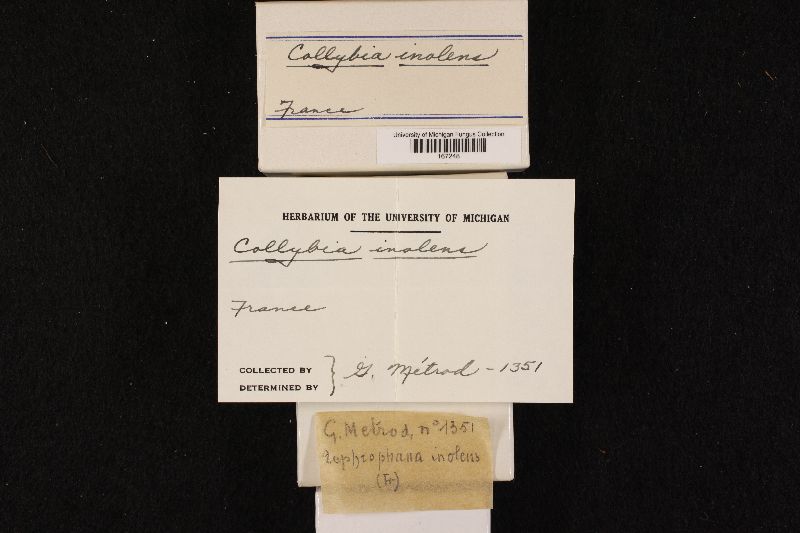 Collybia inolens
France
University of Michigan Fungus Collection
167248
HERBARIUM OF THE UNIVERSITY OF MICHIGAN
Collybia inolens
France
COLLECTED BY
DETERMINED BY } G. Métrod - 1351
G. Metrod, n° 1351
Tephrophana inolens
(Fr)